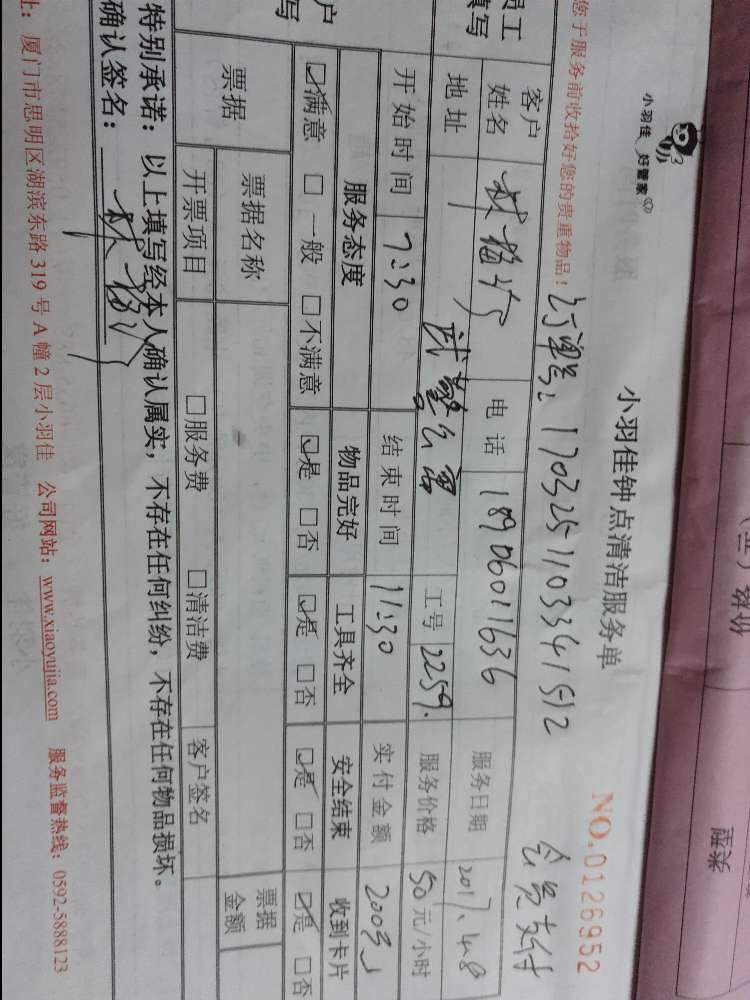 小羽佳 好管家
小羽佳钟点清洁服务单
NO.0126952
您于服务前收拾好您的贵重物品!
订单号:17032511033415512
会员支付
员工
填写
客户
姓名
电话
18906011636
服务日期
2017.4.8
地址
工号
2259.
服务价格
50元/小时
开始时间
7:30
结束时间
11:30
实付金额
200元
户
写
服务态度
物品完好
工具齐全
安全结束
收到卡片
☑满意 □一般 □不满意
☑是 □否
☑是 □否
☑是 □否
☑是 □否
票据
票据名称
票据
金额
开票项目
□服务费
□清洁费
客户签名
特别承诺:以上填写经本人确认属实,不存在任何纠纷,不存在任何物品损坏。
确认签名:
址:厦门市思明区湖滨东路 319 号 A 幢 2 层小羽佳 公司网站:www.xiaoyujia.com 服务监督热线:0592-5888123